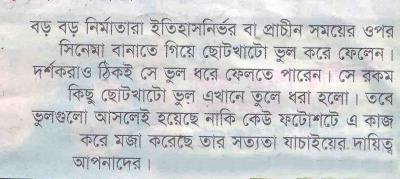 বড় বড় নির্মাতারা ইতিহাসনির্ভর বা প্রাচীন সময়ের ওপর
সিনেমা বানাতে গিয়ে ছোটখাটো ভুল করে ফেলেন।
দর্শকরাও ঠিকই সে ভুল ধরে ফেলতে পারেন। সে রকম
কিছু ছোটখাটো ভুল এখানে তুলে ধরা হলো। তবে
ভুলগুলো আসলেই হয়েছে নাকি কেউ ফটোশটে এ কাজ
করে মজা করেছে তার সত্যতা যাচাইয়ের দায়িত্ব
আপনাদের।